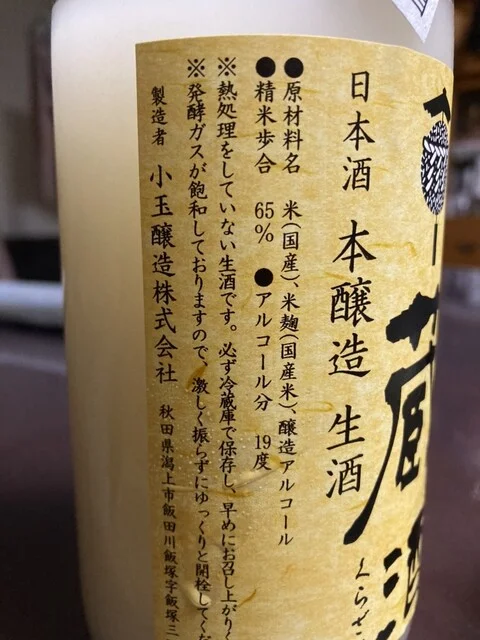 蔵酒
くらざ
日本酒 本醸造 生酒
●原材料名 米(国産)、米麹(国産米)、醸造アルコール
●精米歩合 65% ●アルコール分 19度
※熱処理をしていない生酒です。必ず冷蔵庫で保存し、早めにお召し上がりく
※発酵ガスが飽和しておりますので、激しく振らずにゆっくりと開栓してくだ
製造者 小玉醸造株式会社 秋田県潟上市飯田川飯塚字飯塚三